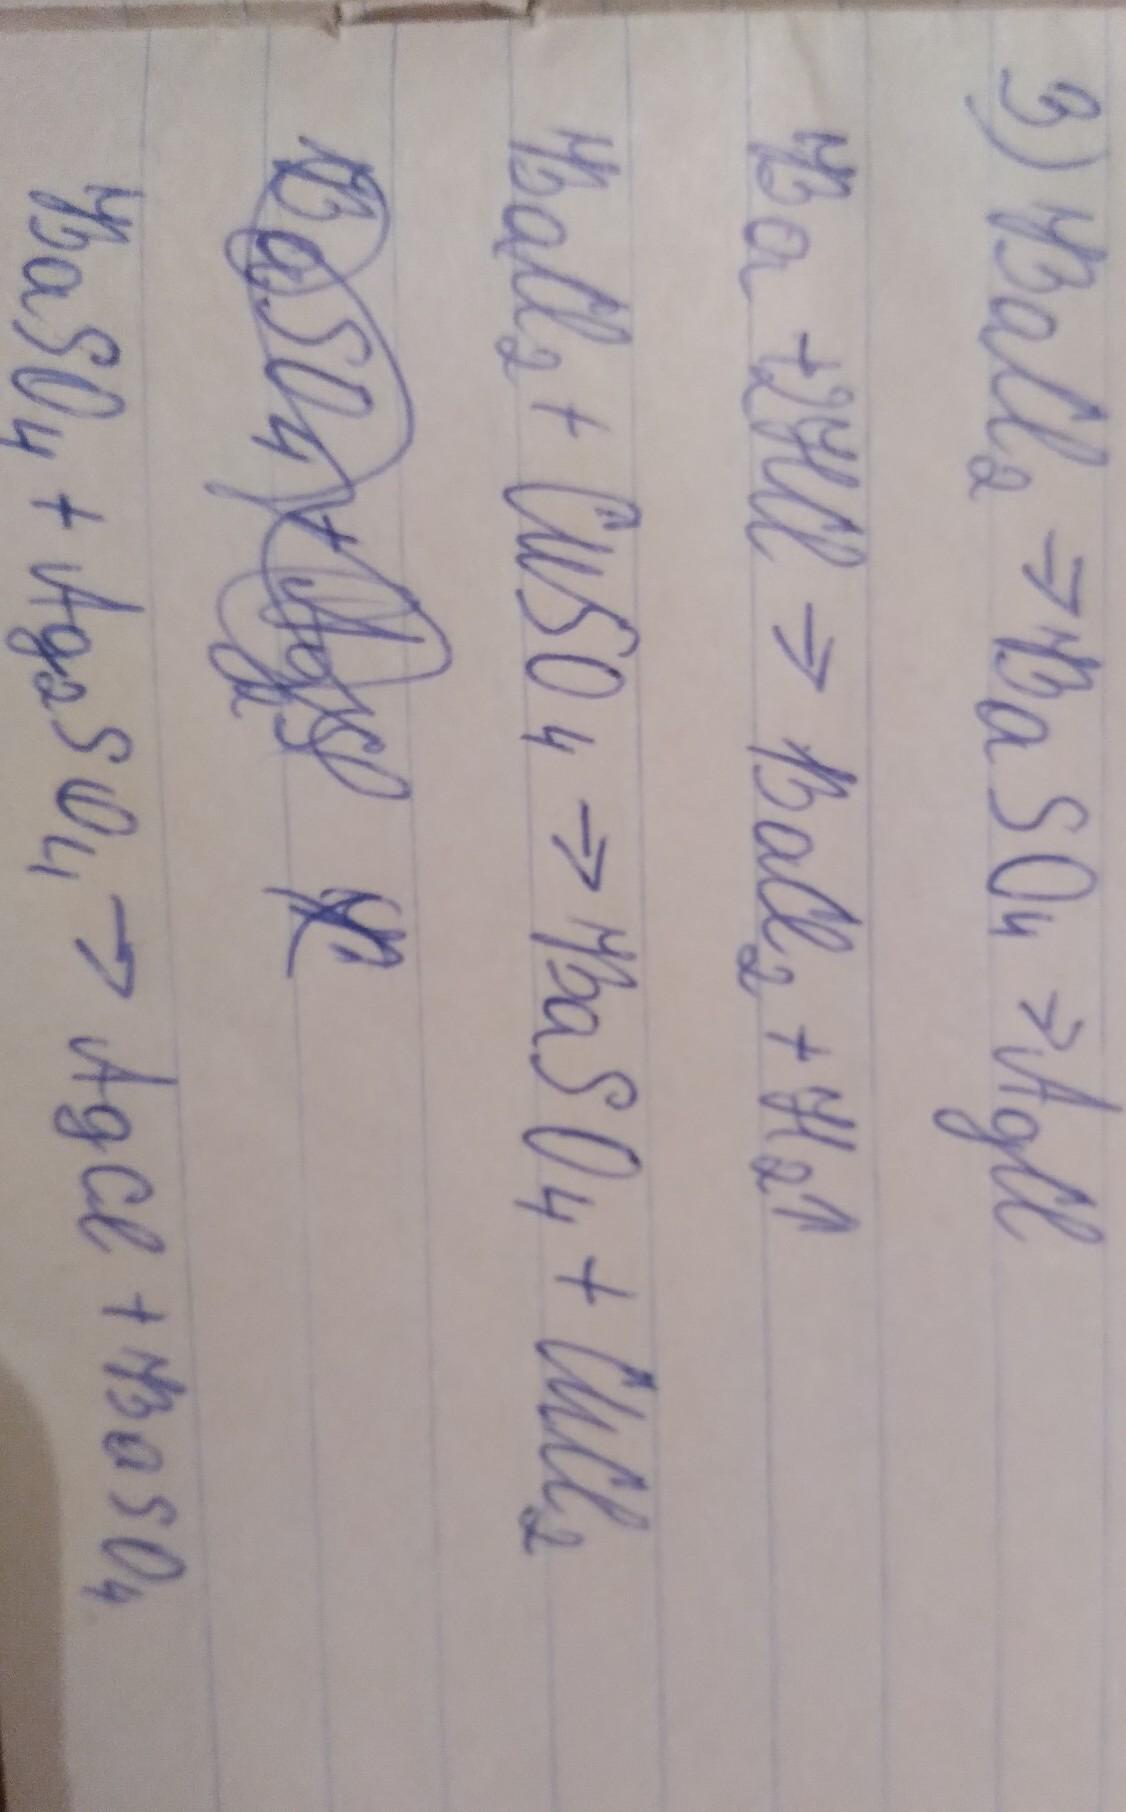 3) BaCl₂ → BaSO₄ → AgCl
Ba + 2HCl → BaCl₂ + H₂↑
BaCl₂ + CuSO₄ → BaSO₄ + CuCl₂
BaSO₄ +
BaSO₄ + Ag₂SO₄ → AgCl + BaSO₄